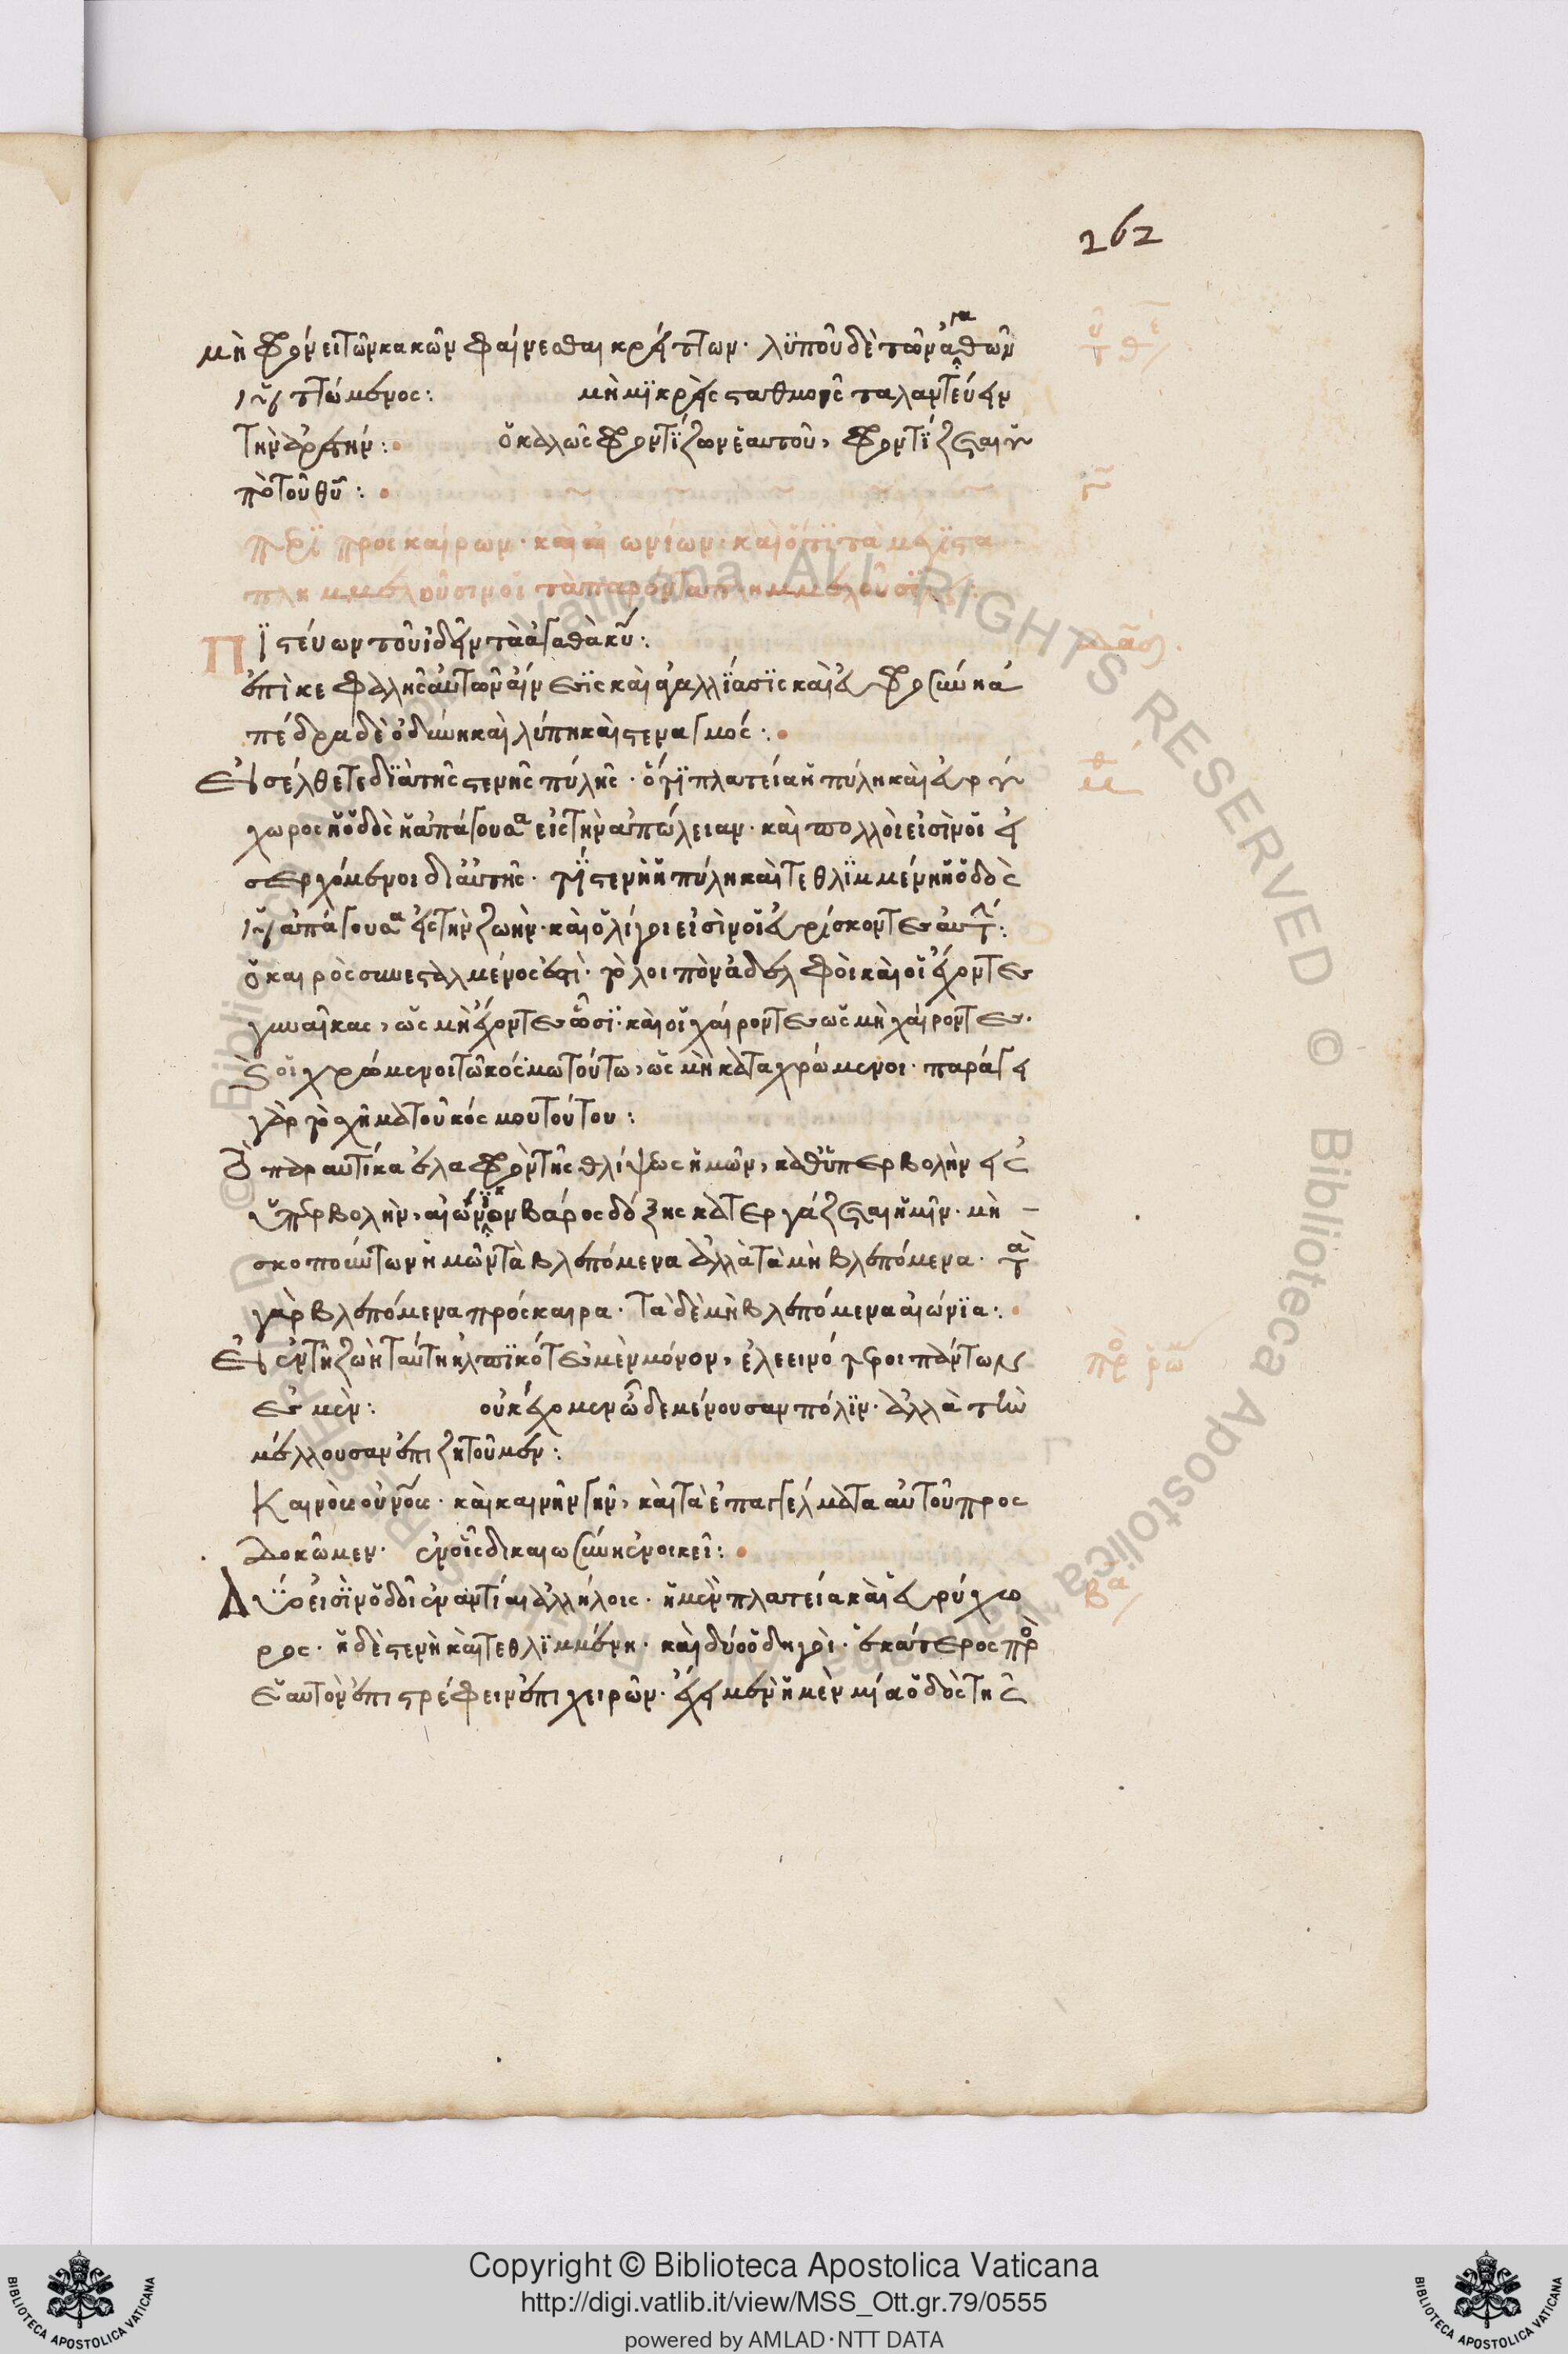 262
μὴ φρόνει τῶν κακῶν φαίνεσθαι κρείττων· λϋποῦ δὲ τῶν ἀγαθῶν
ἡττώμενος: μὴ μϊκροῖς σταθμοῖς ταλαντεύειν
τὴν ἀρετήν:
ὁ καλῶς φροντίζων ἑαυτοῦ, φροντίζεται ὑ
πὸ τοῦ θυ:
περὶ προσκαίρων· καὶ αἰωνίων· καὶ ὅτι τὰ μάλιστα
πλημμελοῦσιν οἱ τὰ παρόντα
Πϊστεύων τοῦ ἰδεῖν τὰ ἀγαθὰ κυ:
ἐπὶ κεφαλῆς αὐτῶν αἴνεσϊς καὶ ἀγαλλίασϊς καὶ εὐφροσύνη ἀ
πέδρα δὲ ὀδύνη καὶ λύπη καὶ στεναγμός:
Εἰσέλθετε δϊὰ τῆς στενῆς πύλης· ὅτϊ πλατεία ἡ πύλη καὶ εὐρύ
χωρος ἡ ὁδὸς ἡ ἀπάγουσα εἰς τὴν ἀπώλειαν· καὶ πολλοὶ εἰσὶν οἱ εἰ
σερχόμενοι δι αὐτῆς· τί στενὴ ἡ πύλη καὶ τεθλϊμμένη ἡ ὁδὸς
ἡ ἀπάγουσα εἰς τὴν ζωὴν· καὶ ὀλίγοι εἰσὶν οἱ εὑρίσκοντες αὐτ:
ὁ καιρὸς συνεσταλμένος ἐστὶ· τὸ λοιπὸν ἀδελφοὶ καὶ οἱ ἔχοντες
γυναῖκας, ὡς μὴ ἔχοντες ὦσϊ· καὶ οἱ χαίροντες ὡς μὴ χαίροντες·
καὶ οἱ χρώμενοι τῶ κόσμω τούτω, ὡς μὴ καταχρώμενοι· παράγει
γὰρ τὸ σχῆμα τοῦ κόσμου τούτου:
Τὸ παραυτίκα ἐλαφρὸν τῆς θλίψεως ἡμῶν, καθ ὑπερβολὴν εἰς
ὑπερβολὴν, αἰώνϊον βάρος δόξης κατεργάζεται ἡμῖν· μὴ
σκοπούντων ἡμῶν τὰ βλεπόμενα ἀλλὰ τὰ μὴ βλεπόμενα· τὰ
γὰρ βλεπόμενα πρόσκαιρα· τὰ δὲ μὴ βλεπόμενα αἰώνϊα:
Εἰ ἐν τῆ ζωῆ ταύτη ἠλπϊκότες ἐσμὲν μόνον, ἐλεεινότεροι πάντων
ἐσμὲν: οὐκ ἔχομεν ὧδε μένουσαν πόλϊν· ἀλλὰ τὴν
μέλλουσαν ἐπιζητοῦμεν:
Καινὸν οὐνον· καὶ καινὴν γῆν, καὶ τὰ ἐπαγγέλματα αὐτοῦ προσ
δοκῶμεν· ἐν οἷς δικαιοσύνη ἐνοικεῖ:
Δύο εἰσϊν ὁδοὶ ἐναντίαι ἀλλήλοις· ἡ μὲν πλατεία καὶ εὐρύχω
ρος· ἡ δὲ στενὴ καὶ τεθλϊμμένη· καὶ δύο ὁδηγοὶ· ἑκάτερος πρὸ
ἑαυτὸν ἐπιστρέφειν ἐπιχειρῶν· ἔχει μὲν ἡ μὲν μία ὁδὸς τῆς
© Biblioteca Apostolica Vaticana ALL RIGHTS RESERVED © Biblioteca Apostolica Vaticana
Copyright © Biblioteca Apostolica Vaticana
http://digi.vatlib.it/view/MSS_Ott.gr.79/0555
powered by AMLAD·NTT DATA
BIBLIOTECA APOSTOLICA VATICANA
BIBLIOTECA APOSTOLICA VATICANA